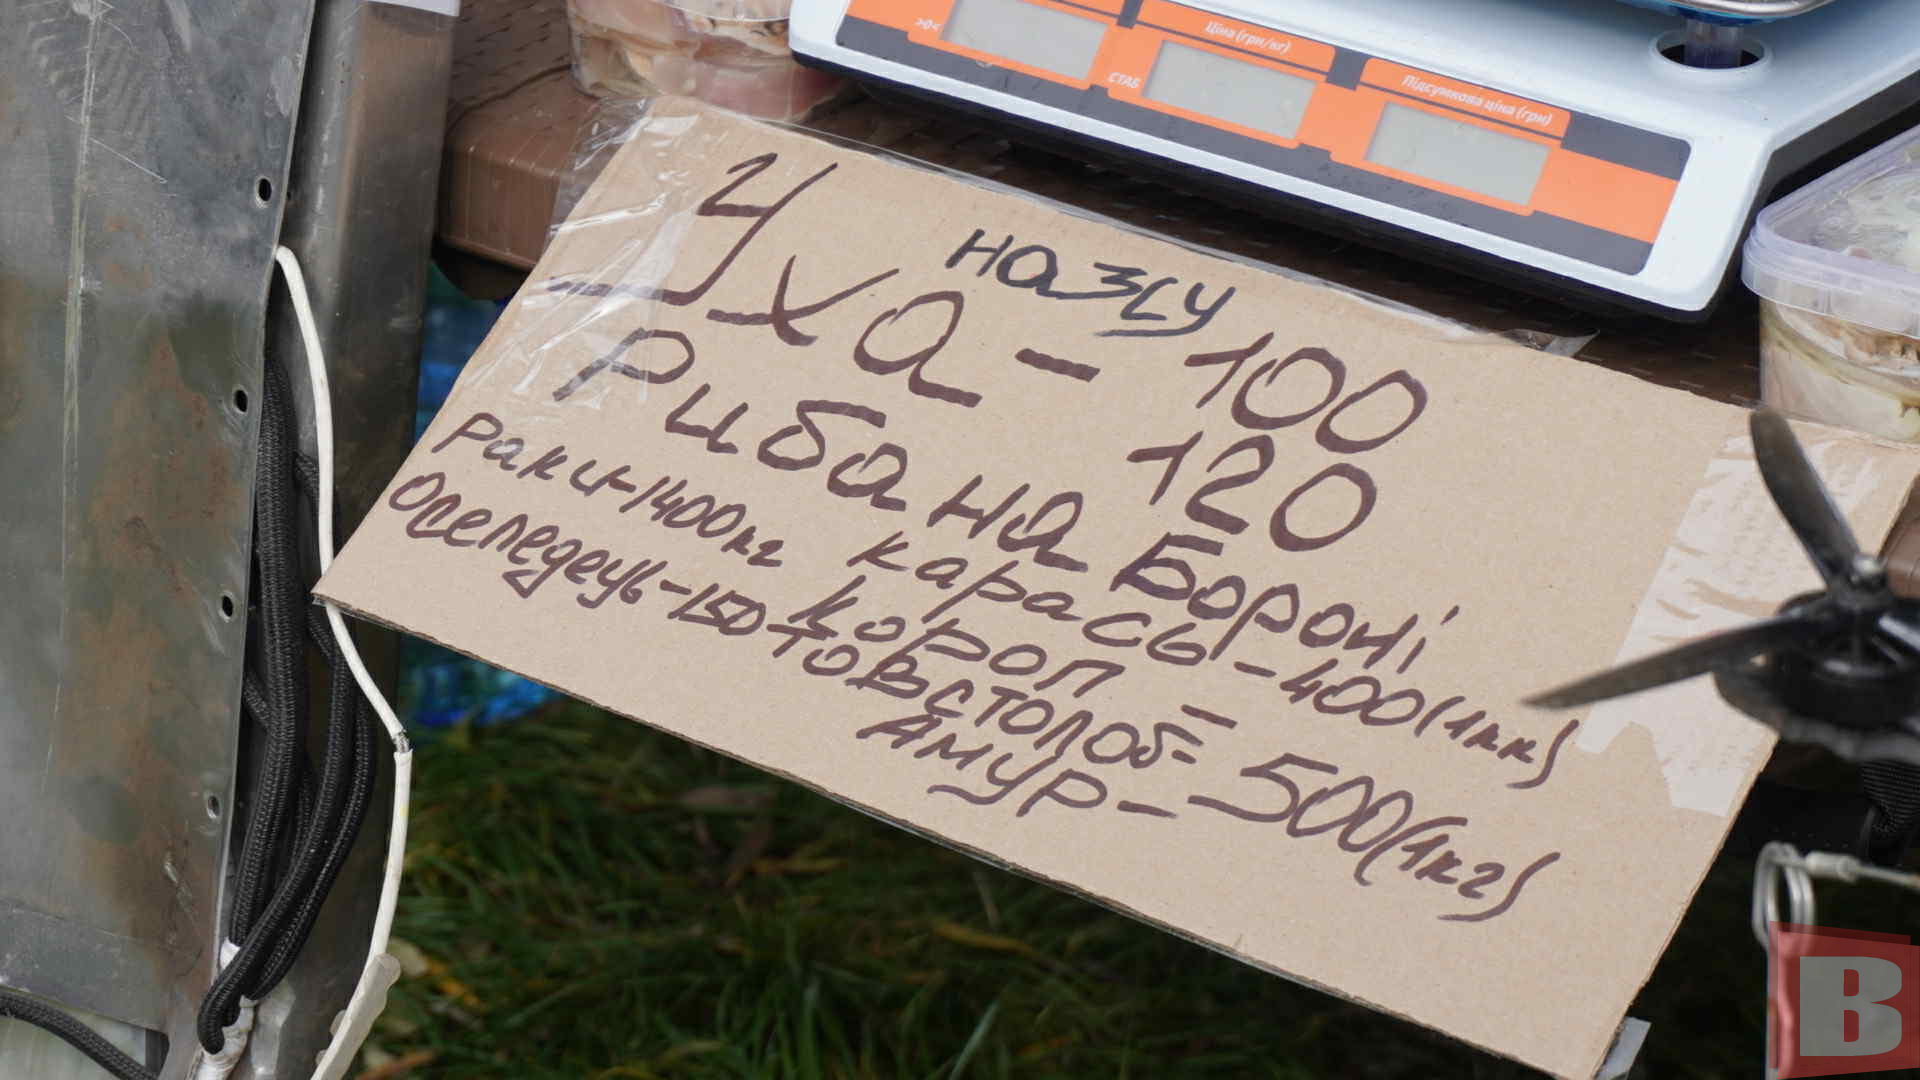 >0<
Ціна (грн/кг)
СТАБ
Підсумкова ціна (грн)
Уха - 100
120
Риба на Бороні
Раки-1400кг
Карась-400(1кк)
Оселедець-150
Короп -
Товстолоб-
500(1кг)
Амур-
В